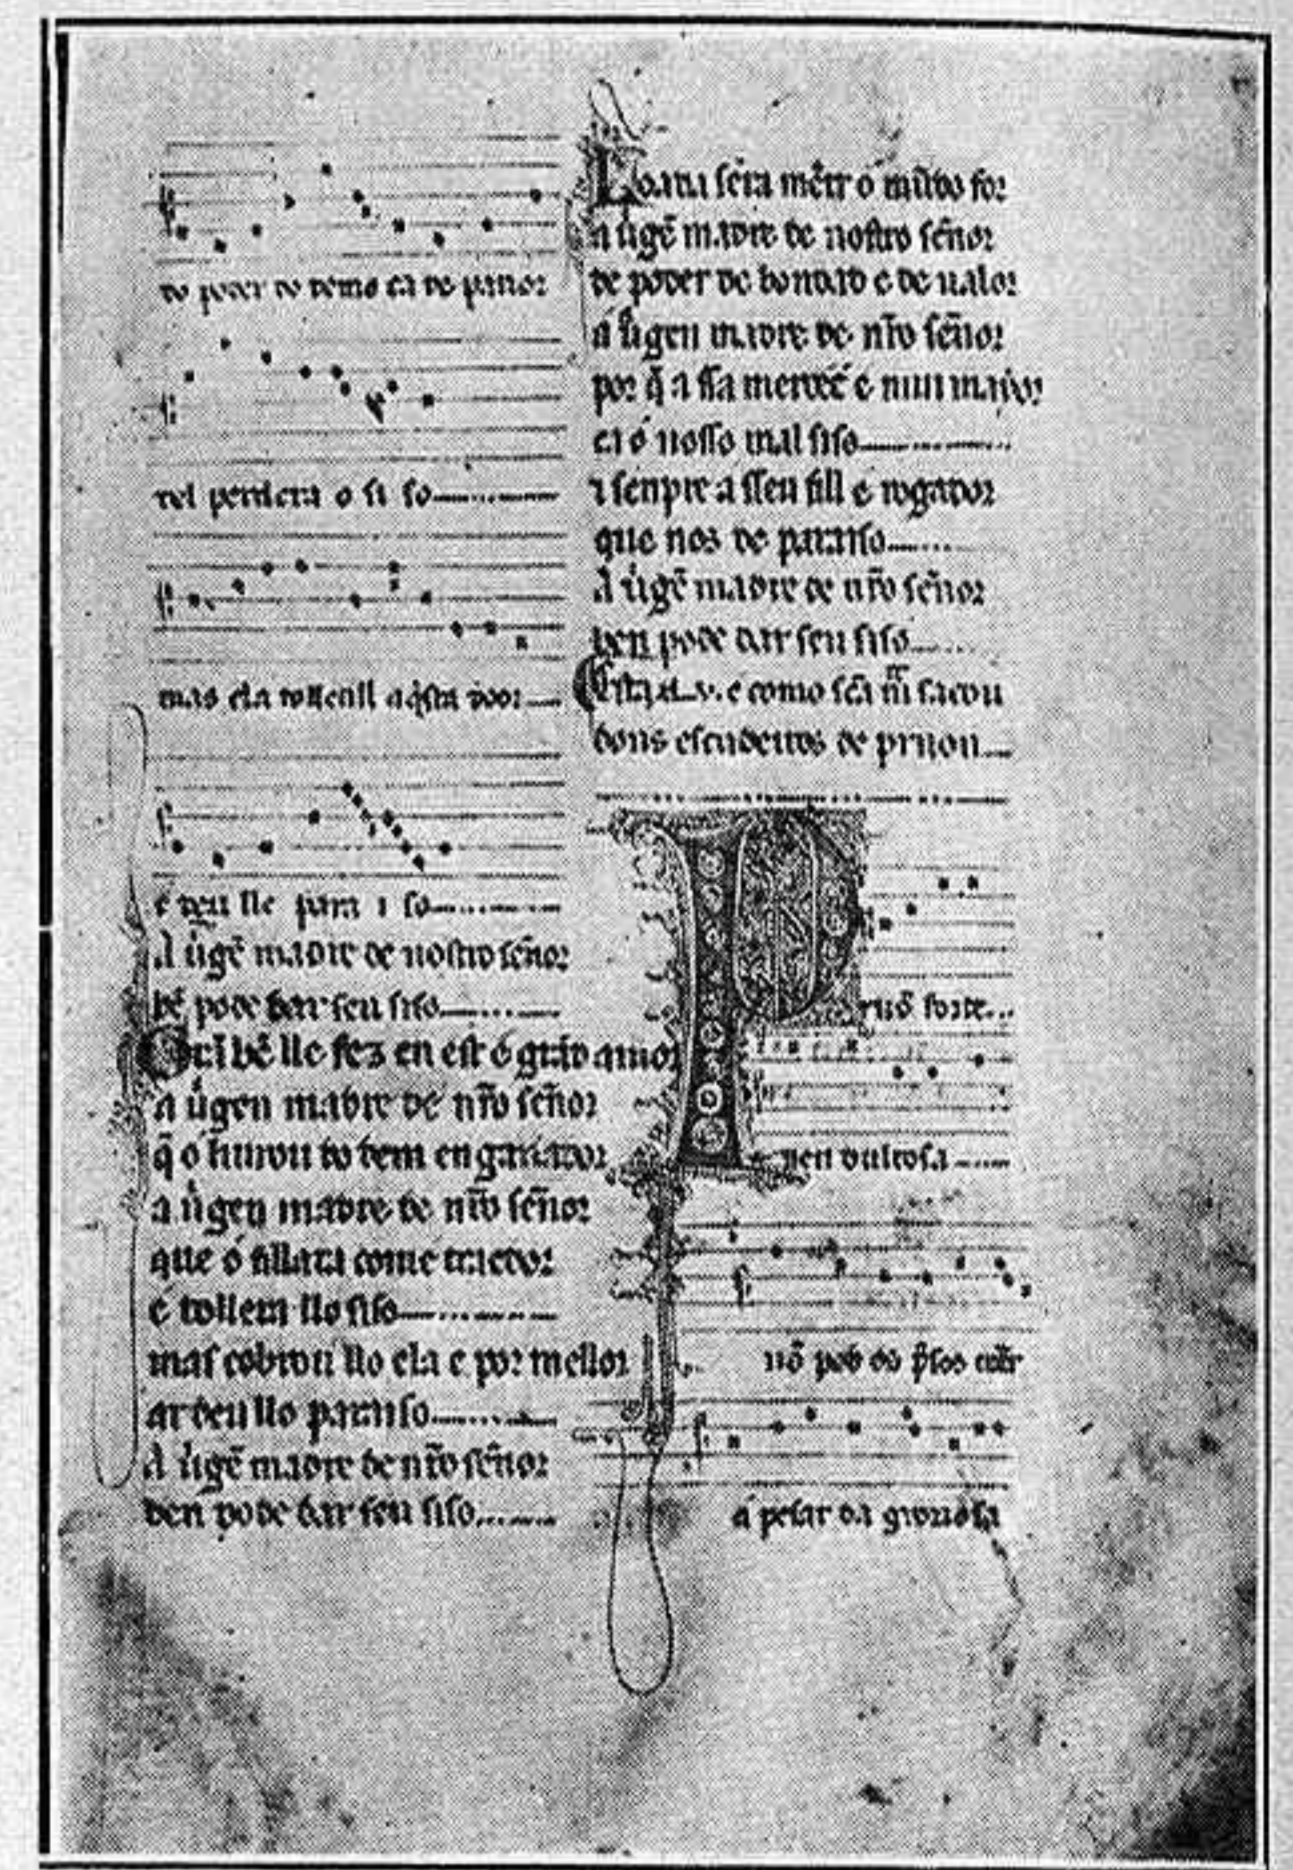 do poder do demo ca de pauor
del perdera o si so
mas ela tolleull aq̃sta door
e deu lle para i so
A uirgẽ madre de nostro señor
bẽ pode dar seu siso
bẽ lle fez en est e grãd amor
a uirgen madre de nr̃o señor
q̃ o liurou do dem enganador
a uirgen madre de nr̃o señor
que o fillara come traedor
e tollera llo siso
mas cobrou llo ela e por mellor
ar deu llo paraiso
A uirgẽ madre de nr̃o señor
ben pode dar seu siso
Loada será mẽtr o mũdo for
a uirgẽ madre de nostro señor
de poder de bondad e de ualor
a uirgen madre de nr̃o señor
por q̃ a ssa merçee e mui mayor
ca o nosso mal siso
i senpre a sseu fill e rogador
que nos de paraiso
A uirgẽ madre de nr̃o señor
ben pode dar seu siso
Esta e como sc̃a m̃ sacou
dous escudeiros de prijon
P risõ forte
nen dultosa
nõ pod os p̃sos tẽer
a pesar da groriosa